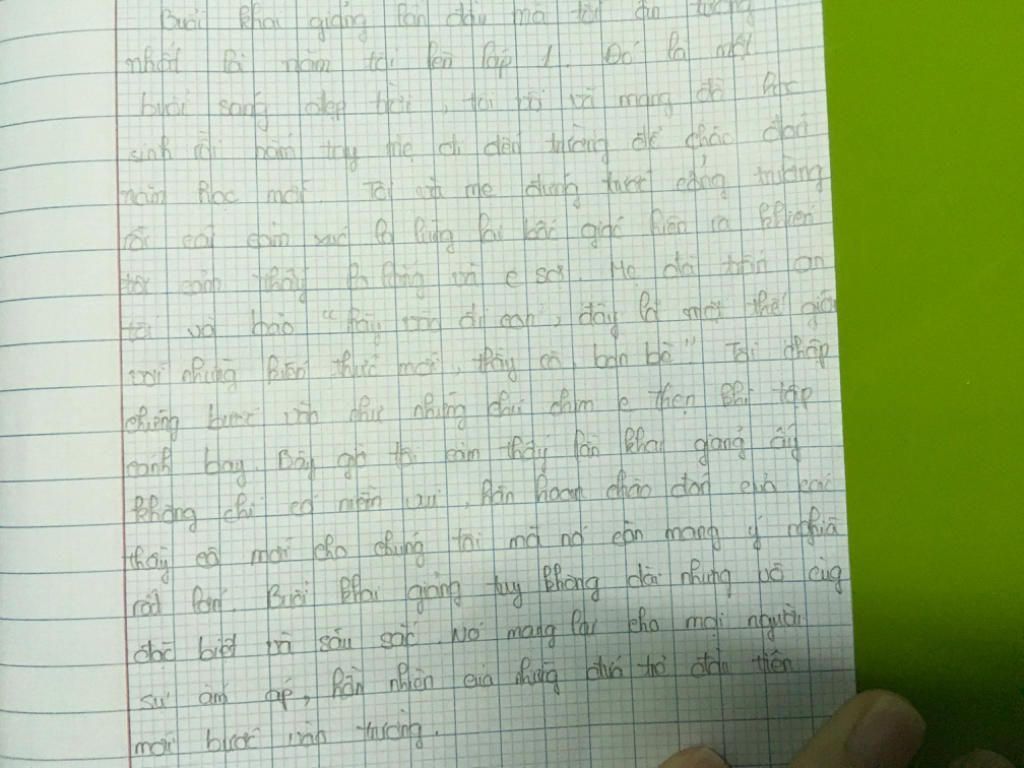 Buổi khai giảng lần đầu mà tôi ấn tượng
nhất là năm tôi lên lớp 1. Đó là một
buổi sáng đẹp trời, tôi vội vã mang đồ học
sinh rồi nắm tay mẹ đi đến trường để chào đón
năm học mới. Tôi và mẹ đứng trước cổng trường
rồi cái cảm xúc lạ lùng lại bấc giác hiện ra khiến
tôi cảm thấy lo lắng và e sợ. Mẹ đã trấn an
tôi và bảo "Hãy vào đi con, đây là một thế giới
với những kiến thức mới, thầy cô, bạn bè" Tôi chập
chững bước vào như những chú chim e thẹn khi tập
cánh bay. Bây giờ tôi cảm thấy lần khai giảng ấy
không chỉ có niềm vui, hân hoan chào đón của các
thầy cô mới cho chúng tôi mà nó còn mang ý nghĩa
rất lớn. Buổi khai giảng tuy không dài nhưng vô cùg
đặc biệt và sâu sắc. Nó mang lại cho mọi người
sự ấm áp, hồn nhiên của những đứa trẻ đầu tiên
mới bước vào trường.